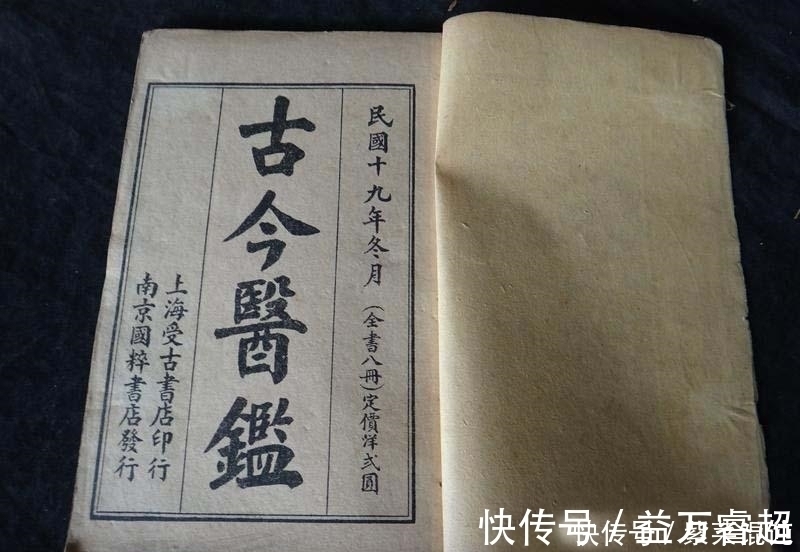 民國十九年冬月(全書八冊)定價洋弍圓
古今醫鑑
上海受古書店印行
南京國粹書店發行
快传号/益万睿超
快传号